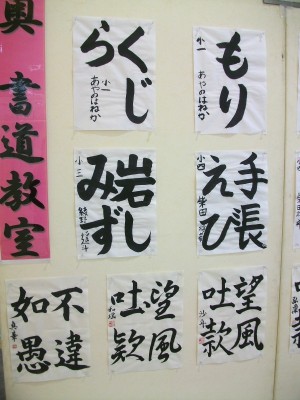 奥 書道教室
もり
小一 あやのはねか
くじ
ら
小一 あやのはねか
手張
えび
小四 柴田
岩し
みず
小三
望風
吐款
望風
吐款
不違
如愚